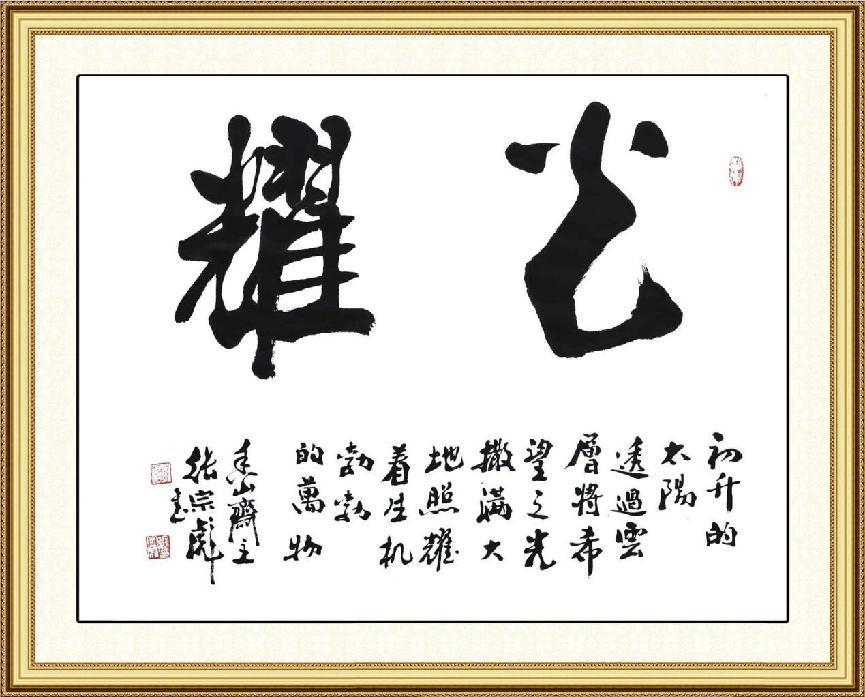 光耀
初升的
太陽
透過雲
層將希
望之光
撒滿大
地照耀
着生机
勃勃
的萬物
山齋主
张宗彪